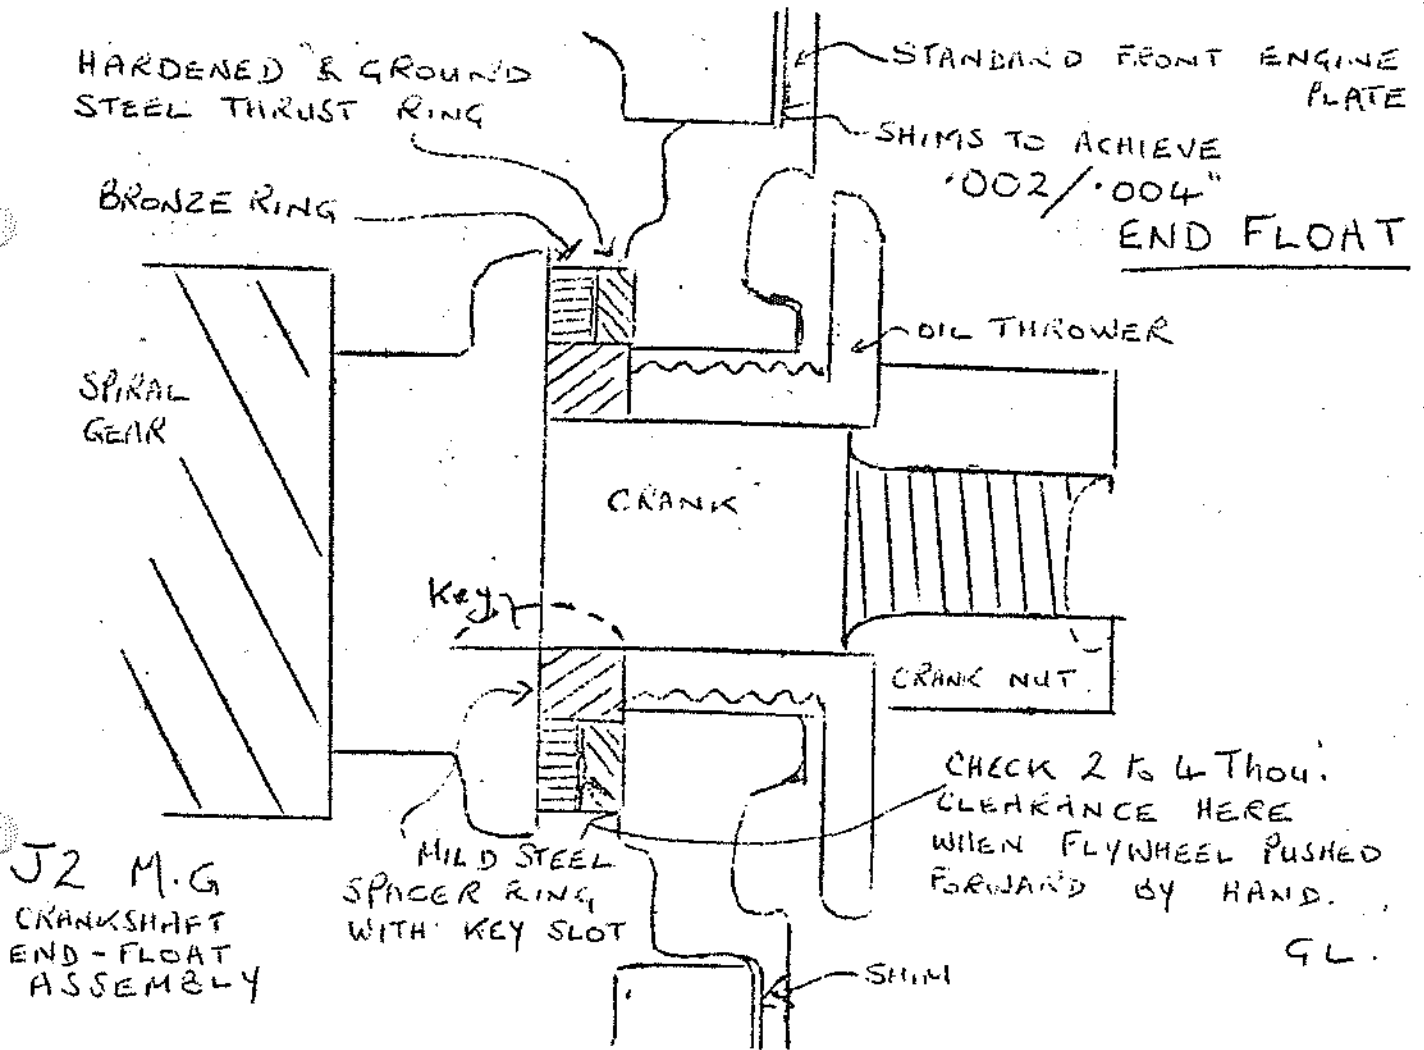 HARDENED & GROUND
STEEL THRUST RING
BRONZE RING
STANDARD FRONT ENGINE
PLATE
SHIMS TO ACHIEVE
·002/·004"
END FLOAT
OIL THROWER
SPIRAL
GEAR
CRANK
Key
CRANK NUT.
CHECK 2 to 4 Thou.
CLEARANCE HERE
WHEN FLYWHEEL PUSHED
FORWARD BY HAND.
GL.
MILD STEEL
SPACER RING
WITH KEY SLOT
J2 M.G
CRANKSHAFT
END-FLOAT
ASSEMBLY
SHIM